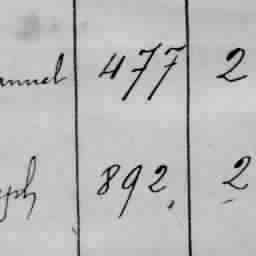 anuel 477 2
eph 892. 2